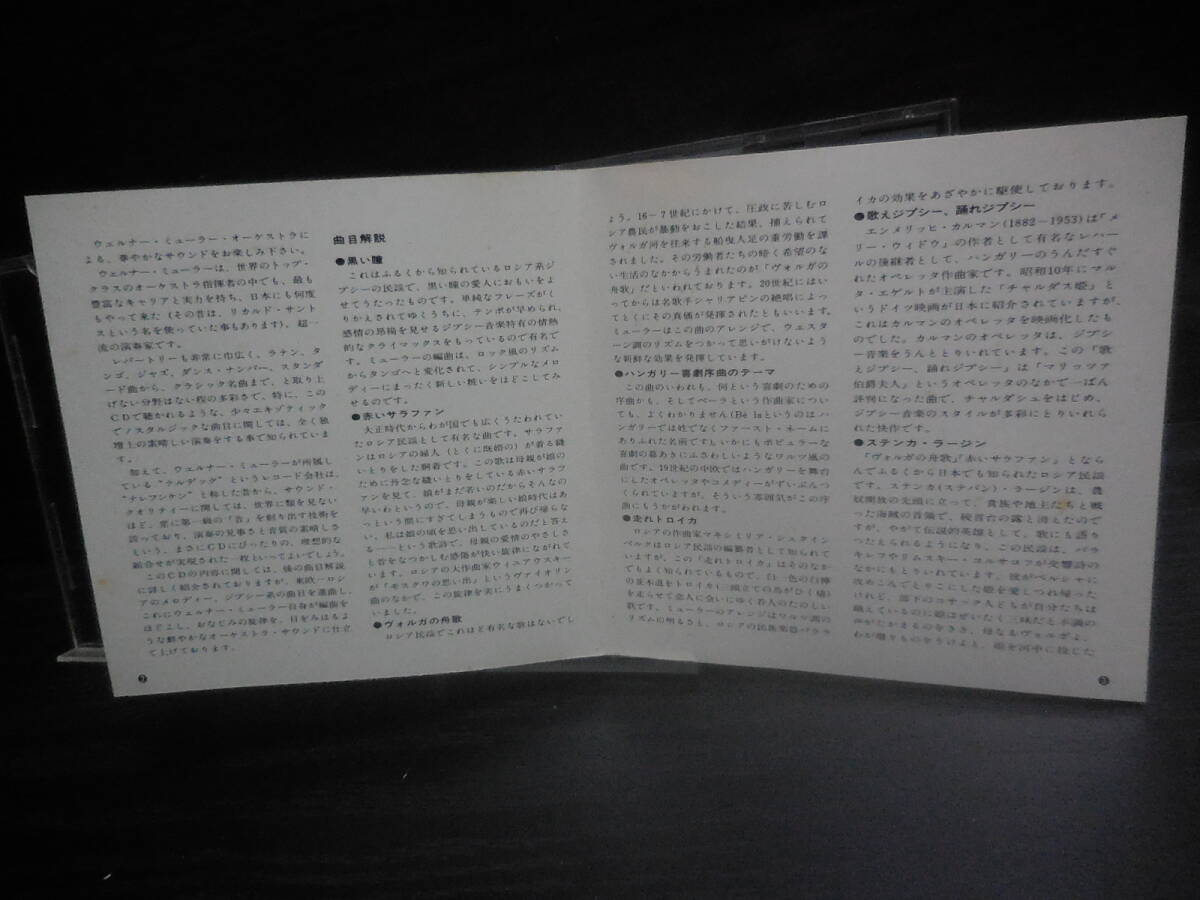 ウェルナー・ミューラー・オーケストラに
よる、華やかなサウンドをお楽しみ下さい。
ウェルナー・ミューラーは、世界のトップ・
クラスのオーケストラ指揮者の中でも、最も
豊富なキャリアと実力を持ち、日本にも何度
もやって来た(その昔は、リカルド・サント
スという名を使っていた事もあります)、超一
流の演奏家です。
レパートリーも非常に巾広く、ラテン、タ
ンゴ、ジャズ、ダンス・ナンバー、スタンダ
ード曲から、クラシック名曲まで、と取り上
げない分野はない程の多彩さで、特に、この
CDで聴かれるような、少々エキゾティック
でノスタルジックな曲目に関しては、全く独
壇上の素晴しい演奏をする事で知られていま
す。
加えて、ウェルナー・ミューラーが所属し
ている“テルデック”というレコード会社は、
“テレフンケン”と称した昔から、サウンド・
クオリティーに関しては、世界に類を見ない
ほど、常に第一級の「音」を創り出す技術を
誇っており、演奏の見事さと音質の素晴しさ
という、まさにCDにぴったりの、理想的な
組合せが実現された一枚といってよいでしょう。
このCDの内容に関しては、後の曲目解説
に詳しく紹介されておりますが、東欧〜ロシ
アのメロディー、ジプシー系の曲目を選曲し、
これにウェルナー・ミューラー自身が編曲を
ほどこし、おなじみの旋律を、目をみはるよ
うな鮮やかなオーケストラ・サウンドに仕立
て上げております。
2
曲目解説
●黒い瞳
これはふるくから知られているロシア系ジ
プシーの民謡で、黒い瞳の愛人におもいをよ
せてうたったものです。単純なフレーズがく
りかえされてゆくうちに、テンポが早められ、
感情の昂揚を見せるジプシー音楽特有の情熱
的なクライマックスをもっているので有名で
す。ミューラーの編曲は、ロック風のリズム
からタンゴへと変化されて、シンプルなメロ
ディーにまったく新しい粧いをほどこしてみ
せるのです。
●赤いサラファン
大正時代からわが国でも広くうたわれてい
たロシア民謡として有名な曲です。サラファ
ンはロシアの婦人(とくに既婚の)が着る縫
いとりをした胴着です。この歌は母親が娘の
ために丹念な縫いとりをしている赤いサラフ
ァンを見て、娘がまだ若いのだからそんなの
早いわというので、母親が楽しい娘時代はあ
っという間にすぎてしまうもので再び帰らな
い、私は娘の頃を思い出しているのだと答え
る――という歌詩で、母親の愛情のやさしさ
と昔をなつかしむ感傷が快い旋律にながれて
います。ロシアの大作曲家ウィニアウスキー
が「モスクワの思い出」というヴァイオリン
曲のなかで、この旋律を実にうまくつかって
いました。
●ヴォルガの舟歌
ロシア民謡でこれほど有名な歌はないでし
ょう。16−7世紀にかけて、圧政に苦しむロ
シア農民が暴動をおこした結果、捕えられて
ヴォルガ河を往来する船曳人足の重労働を課
されました。その労働者たちの暗く希望のな
い生活のなかからうまれたのが「ヴォルガの
舟歌」だといわれております。20世紀にはい
ってからは名歌手シャリアピンの絶唱によっ
てとくにその真価が発揮されたともいいます。
ミューラーはこの曲のアレンジで、ウエスタ
ーン調のリズムをつかって思いがけないよう
な新鮮な効果を発揮しています。
●ハンガリー喜劇序曲のテーマ
この曲のいわれも、何という喜劇のための
序曲かも、そしてベーラという作曲家につい
ても、よくわかりません(Bé laというのはハ
ンガリーでは姓でなくファースト・ネームに
ありふれた名前です)。いかにもポピュラーな
喜劇の幕あきにふさわしいようなワルツ風の
曲です。19世紀の中欧ではハンガリーを舞台
にしたオペレッタやコメディーがずいぶんつ
くられていますが、そういう雰囲気がこの序
曲にもうかがわれます。
●走れトロイカ
ロシアの作曲家マキシミリア・シュタイン
ベルクはロシア民謡の編纂者として知られて
いますが、この「走れトロイカ」はそのなか
でもよく知られているもので、白一色の白樺
の並木道をトロイカ(三頭立ての馬がひく橇)
を走らせて恋人に会いにゆく若人のたのしい
歌です。ミューラーのアレンジはワルツ調の
リズムの明るさと、ロシアの民族楽器バララ
イカの効果をあざやかに駆使しております。
●歌えジプシー、踊れジプシー
エンメリッヒ・カルマン(1882−1953)は「メ
リー・ウィドウ」の作者として有名なレハー
ルの後継者として、ハンガリーのうんだすぐ
れたオペレッタ作曲家です。昭和10年にマル
タ・エゲルトが主演した「チャルダス姫」と
いうドイツ映画が日本に紹介されていますが、
これはカルマンのオペレッタを映画化したも
のでした。カルマンのオペレッタは、ジプシ
ー音楽をうんととりいれています。この「歌
えジプシー、踊れジプシー」は「マリッツァ
伯爵夫人」というオペレッタのなかで一ばん
評判になった曲で、チャルダシュをはじめ、
ジプシー音楽のスタイルが多彩にとりいれら
れた快作です。
●ステンカ・ラージン
「ヴォルガの舟歌」「赤いサラファン」となら
んでふるくから日本でも知られたロシア民謡
です。ステンカ(ステパン)・ラージンは、農
奴開放の先頭に立って、貴族や地主たちと戦
った海賊の首領で、絞首台の露と消えたので
すが、やがて伝説的英雄として、歌にも語り
つたえられるようになり、この民謡は、バラ
キレフやリムスキー・コルサコフが交響詩の
なかにもとりいれています。彼がペルシャに
攻めこんでとりこにした姫を愛しつれ帰った
けれど、部下のコサック人どもが自分たちは
餓えているのに姫はぜいたく三昧だと不満の
声がたかまるのをきき、母なるヴォルガよ、
わが贈りものをうけよと、姫を河中に投じた
3